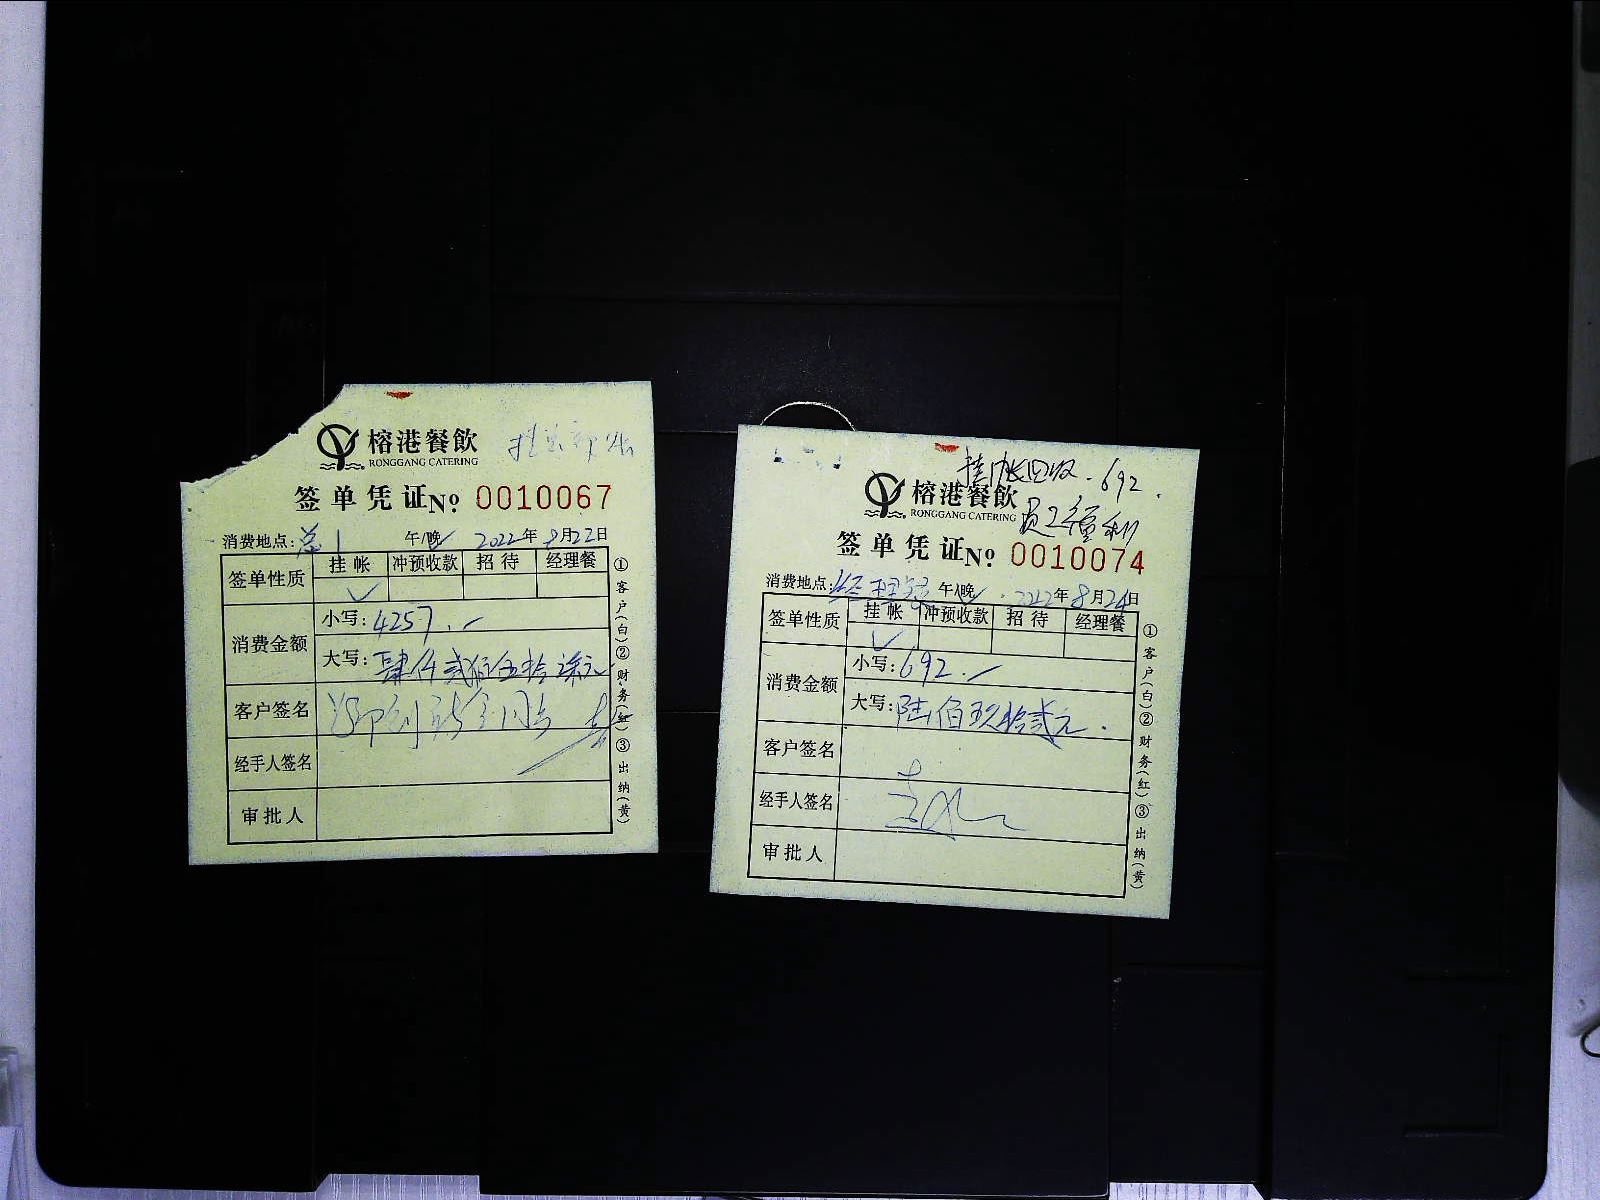 榕港餐飲
RONGGANG CATERING
签单凭证No 0010067
消费地点:总1 午/晚 2022年8月22日
签单性质 挂帐 冲预收款 招待 经理餐
消费金额 小写:4257.-
大写:肆仟贰佰伍拾柒元
客户签名
经手人签名
审批人
①客户(白)②财务(红)③出纳(黄)
挂帐回收.692.
榕港餐飲
RONGGANG CATERING
员工福利
签单凭证No 0010074
消费地点:经理室 午/晚 2022年8月24日
签单性质 挂帐 冲预收款 招待 经理餐
消费金额 小写:692.-
大写:陆佰玖拾贰元.
客户签名
经手人签名
审批人
①客户(白)②财务(红)③出纳(黄)